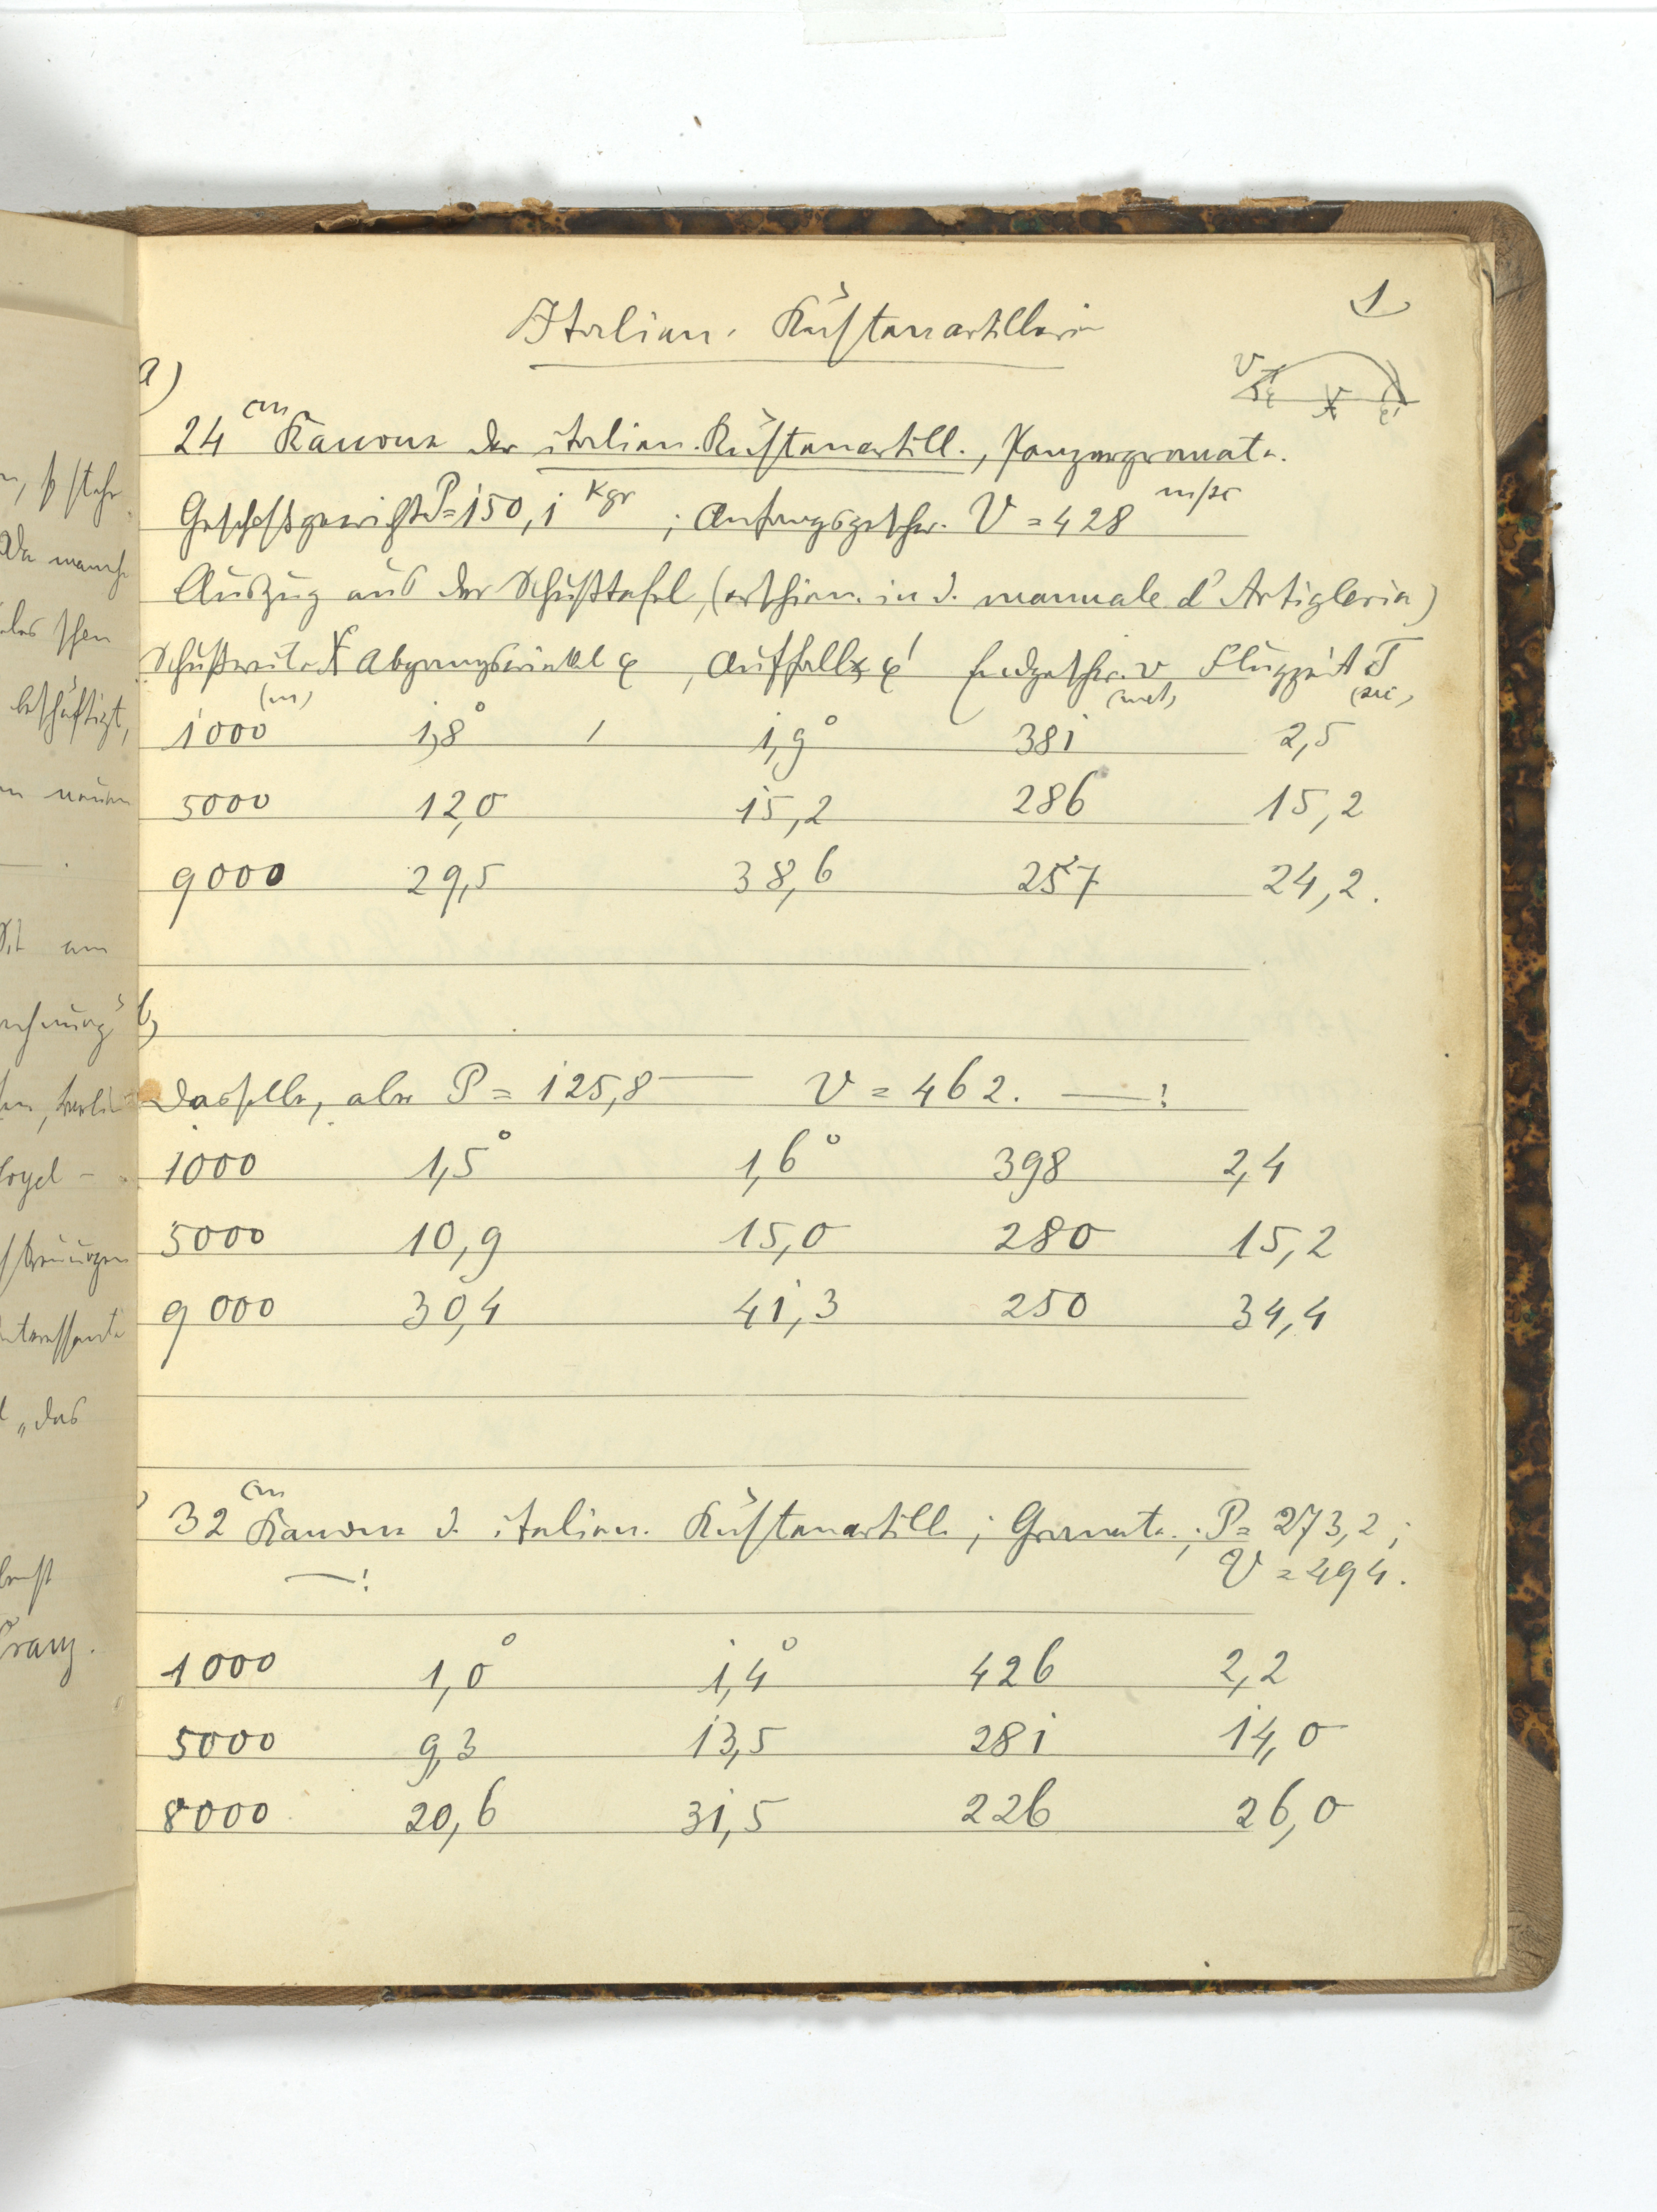 1
Italien. Küstenartillerie
a)
V φ X φ'
24 cm Kanone der italien. Küstenartill., Panzergranate.
Geschoßgewicht P = 150,1 Kgr ; Anfangsgeschw. V = 428 m/sec
Auszug aus der Schußtafel, (erschien. in d. manuale d'Artigleria)
Schußweite X (m) Abgangswinkel φ , Auffall φ' Endgeschw. v (met) Flugzeit T (sec)
1000 1,8° 1,9° 381 2,5
5000 12,0 15,2 286 15,2
9000 29,5 38,6 257 24,2.
b)
Dasselbe, aber P = 125,8 — V = 462. —:
1000 1,5° 1,6° 398 2,4
5000 10,9 15,0 280 15,2
9000 30,4 41,3 250 34,4
32 cm Kanone d. italien. Küstenartill ; Granate ; P = 273,2 ;
—: V = 494.
1000 1,0° 1,4° 426 2,2
5000 9,3 13,5 281 14,0
8000 20,6 31,5 226 26,0